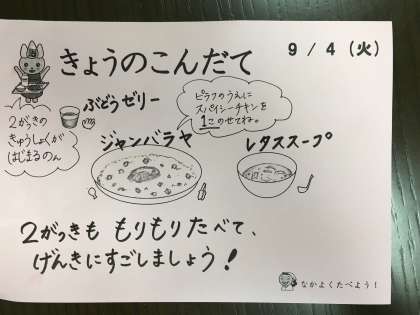 きょうのこんだて
9/4(火)
ぶどうゼリー
2がっきの
きゅうしょくが
はじまるのん
ピラフのうえに
スパイシーチキンを
1このせてね。
ジャンバラヤ
レタススープ
2がっきも もりもりたべて、
げんきにすごしましょう!
なかよくたべよう!